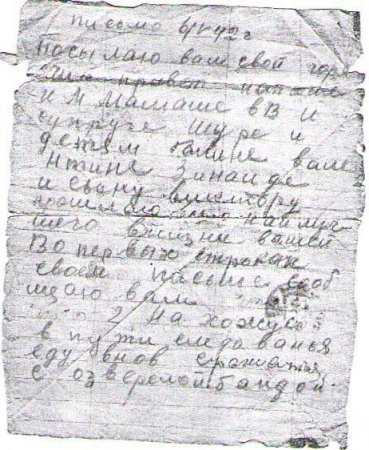 письмо 4/V 42 г
Посылаю вам свой горя
привет
и м мамаше в В и
супруге Шуре и
детям Галине вале
нтине Зинаиде
и сыну виктору
шего вжизни вашей
Во первых строках
своем письме сооб
щаю вам
нахожусь
в пути следованья
еду внов сражатся
с озверелой бандой.